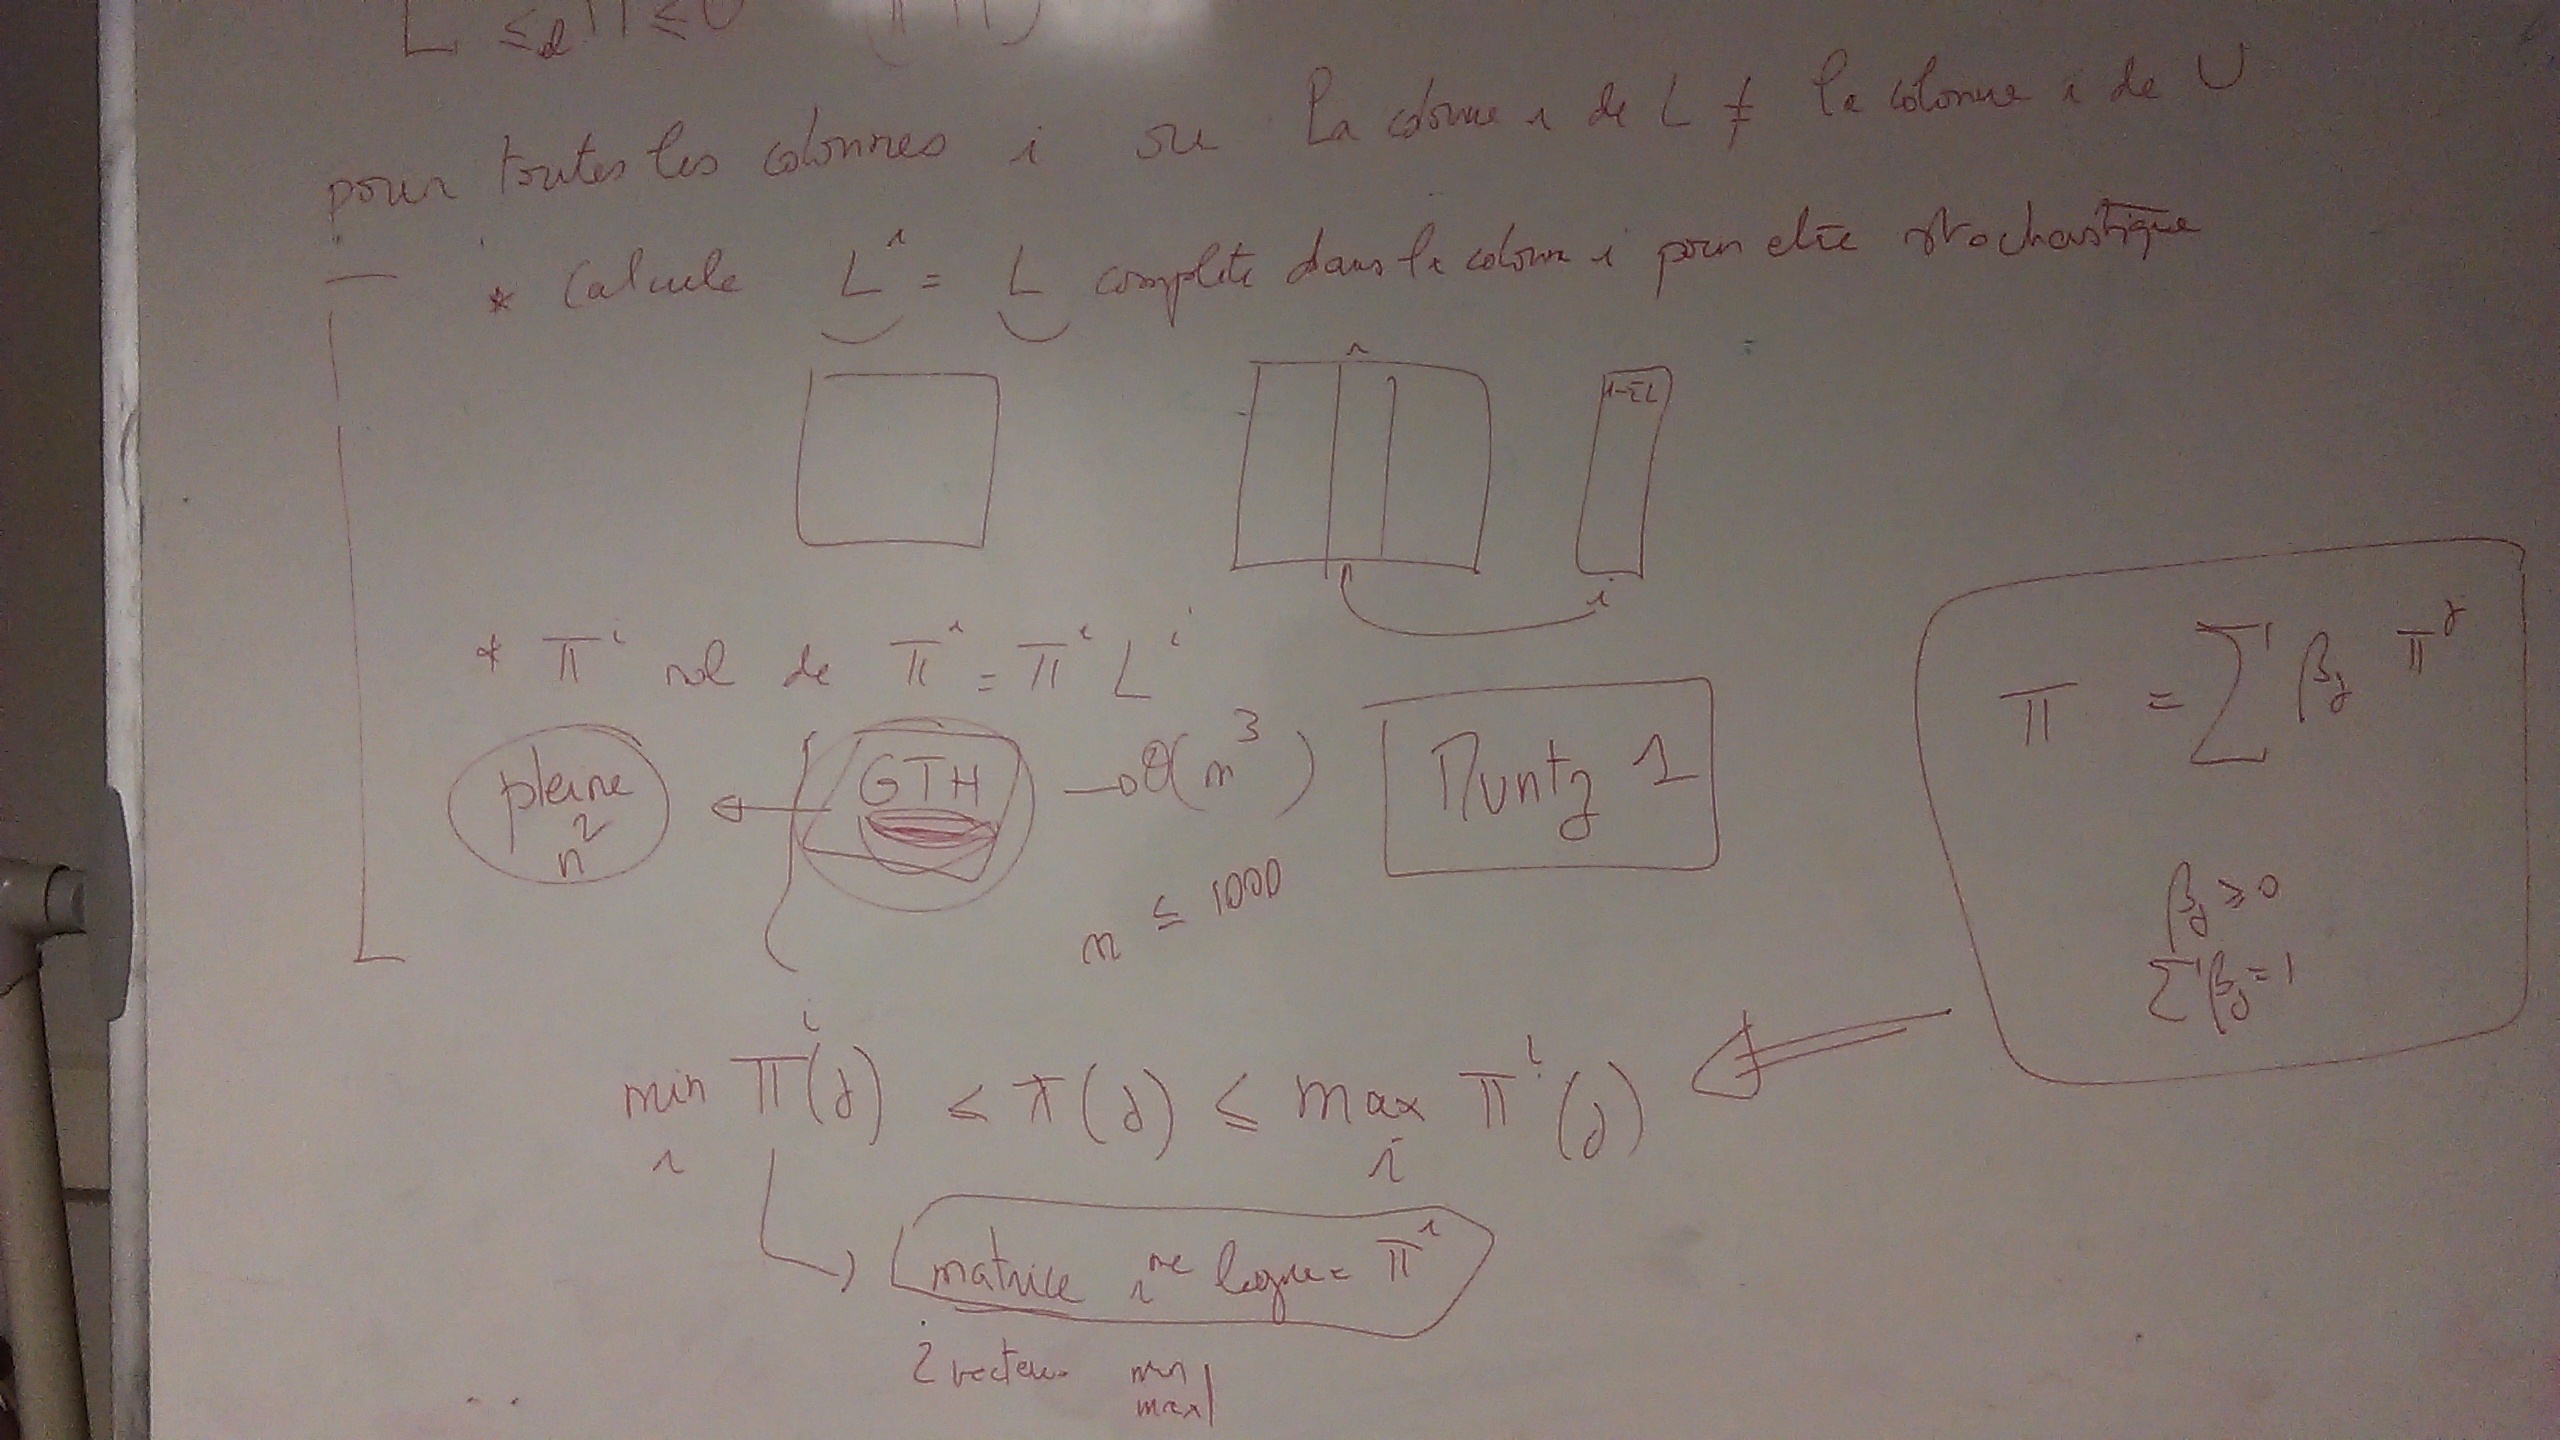 L ≤ M ≤ U
pour toutes les colonnes i où la colonne i de L ≠ la colonne i de U
* Calcule L^i = L complete dans la colonne i pour etre stochastique
i
1-ΣL
i
* π^i sol de π^i = π^i L^i
pleine n^2 ← GTH → O(n^3)
Muntz 1
n ≤ 1000
π = Σ β_j π^j
β_j ≥ 0
Σ β_j = 1
min_i π^i(j) ≤ π(j) ≤ max_i π^i(j)
matrice i^me ligne = π^i
2 vecteurs min
max